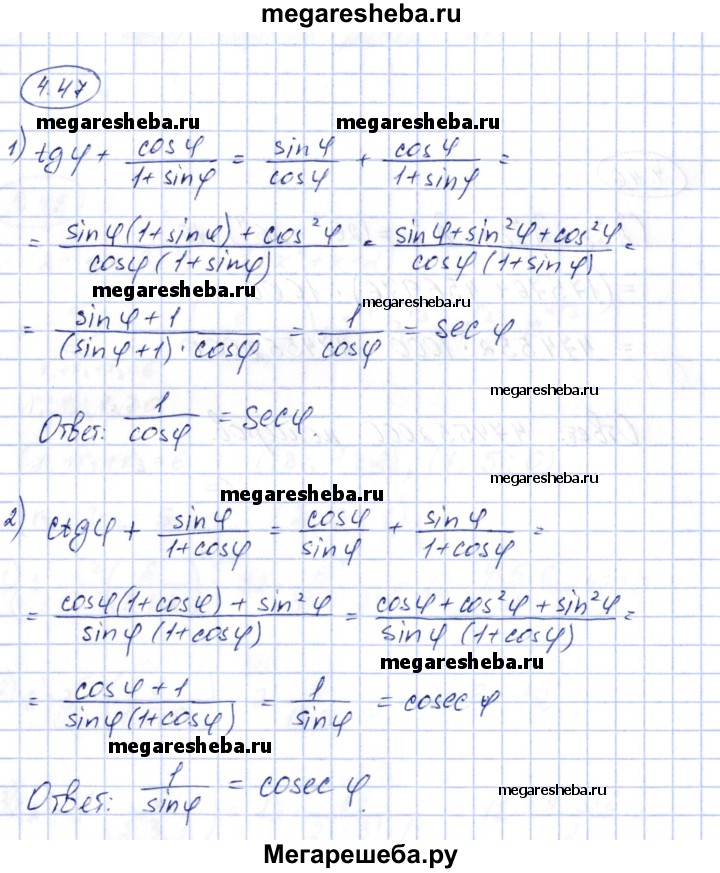 megaresheba.ru
4.47
megaresheba.ru megaresheba.ru
1) tg φ + cos φ / (1 + sin φ) = sin φ / cos φ + cos φ / (1 + sin φ) =
= (sin φ (1 + sin φ) + cos² φ) / (cos φ (1 + sin φ)) = (sin φ + sin² φ + cos² φ) / (cos φ (1 + sin φ)) =
megaresheba.ru megaresheba.ru
= (sin φ + 1) / ((sin φ + 1) · cos φ) = 1 / cos φ = sec φ
megaresheba.ru
Ответ: 1 / cos φ = sec φ.
megaresheba.ru
megaresheba.ru
2) ctg φ + sin φ / (1 + cos φ) = cos φ / sin φ + sin φ / (1 + cos φ) =
= (cos φ (1 + cos φ) + sin² φ) / (sin φ (1 + cos φ)) = (cos φ + cos² φ + sin² φ) / (sin φ (1 + cos φ)) =
megaresheba.ru
= (cos φ + 1) / (sin φ (1 + cos φ)) = 1 / sin φ = cosec φ
megaresheba.ru
Ответ: 1 / sin φ = cosec φ.
megaresheba.ru
Мегарешеба.ру